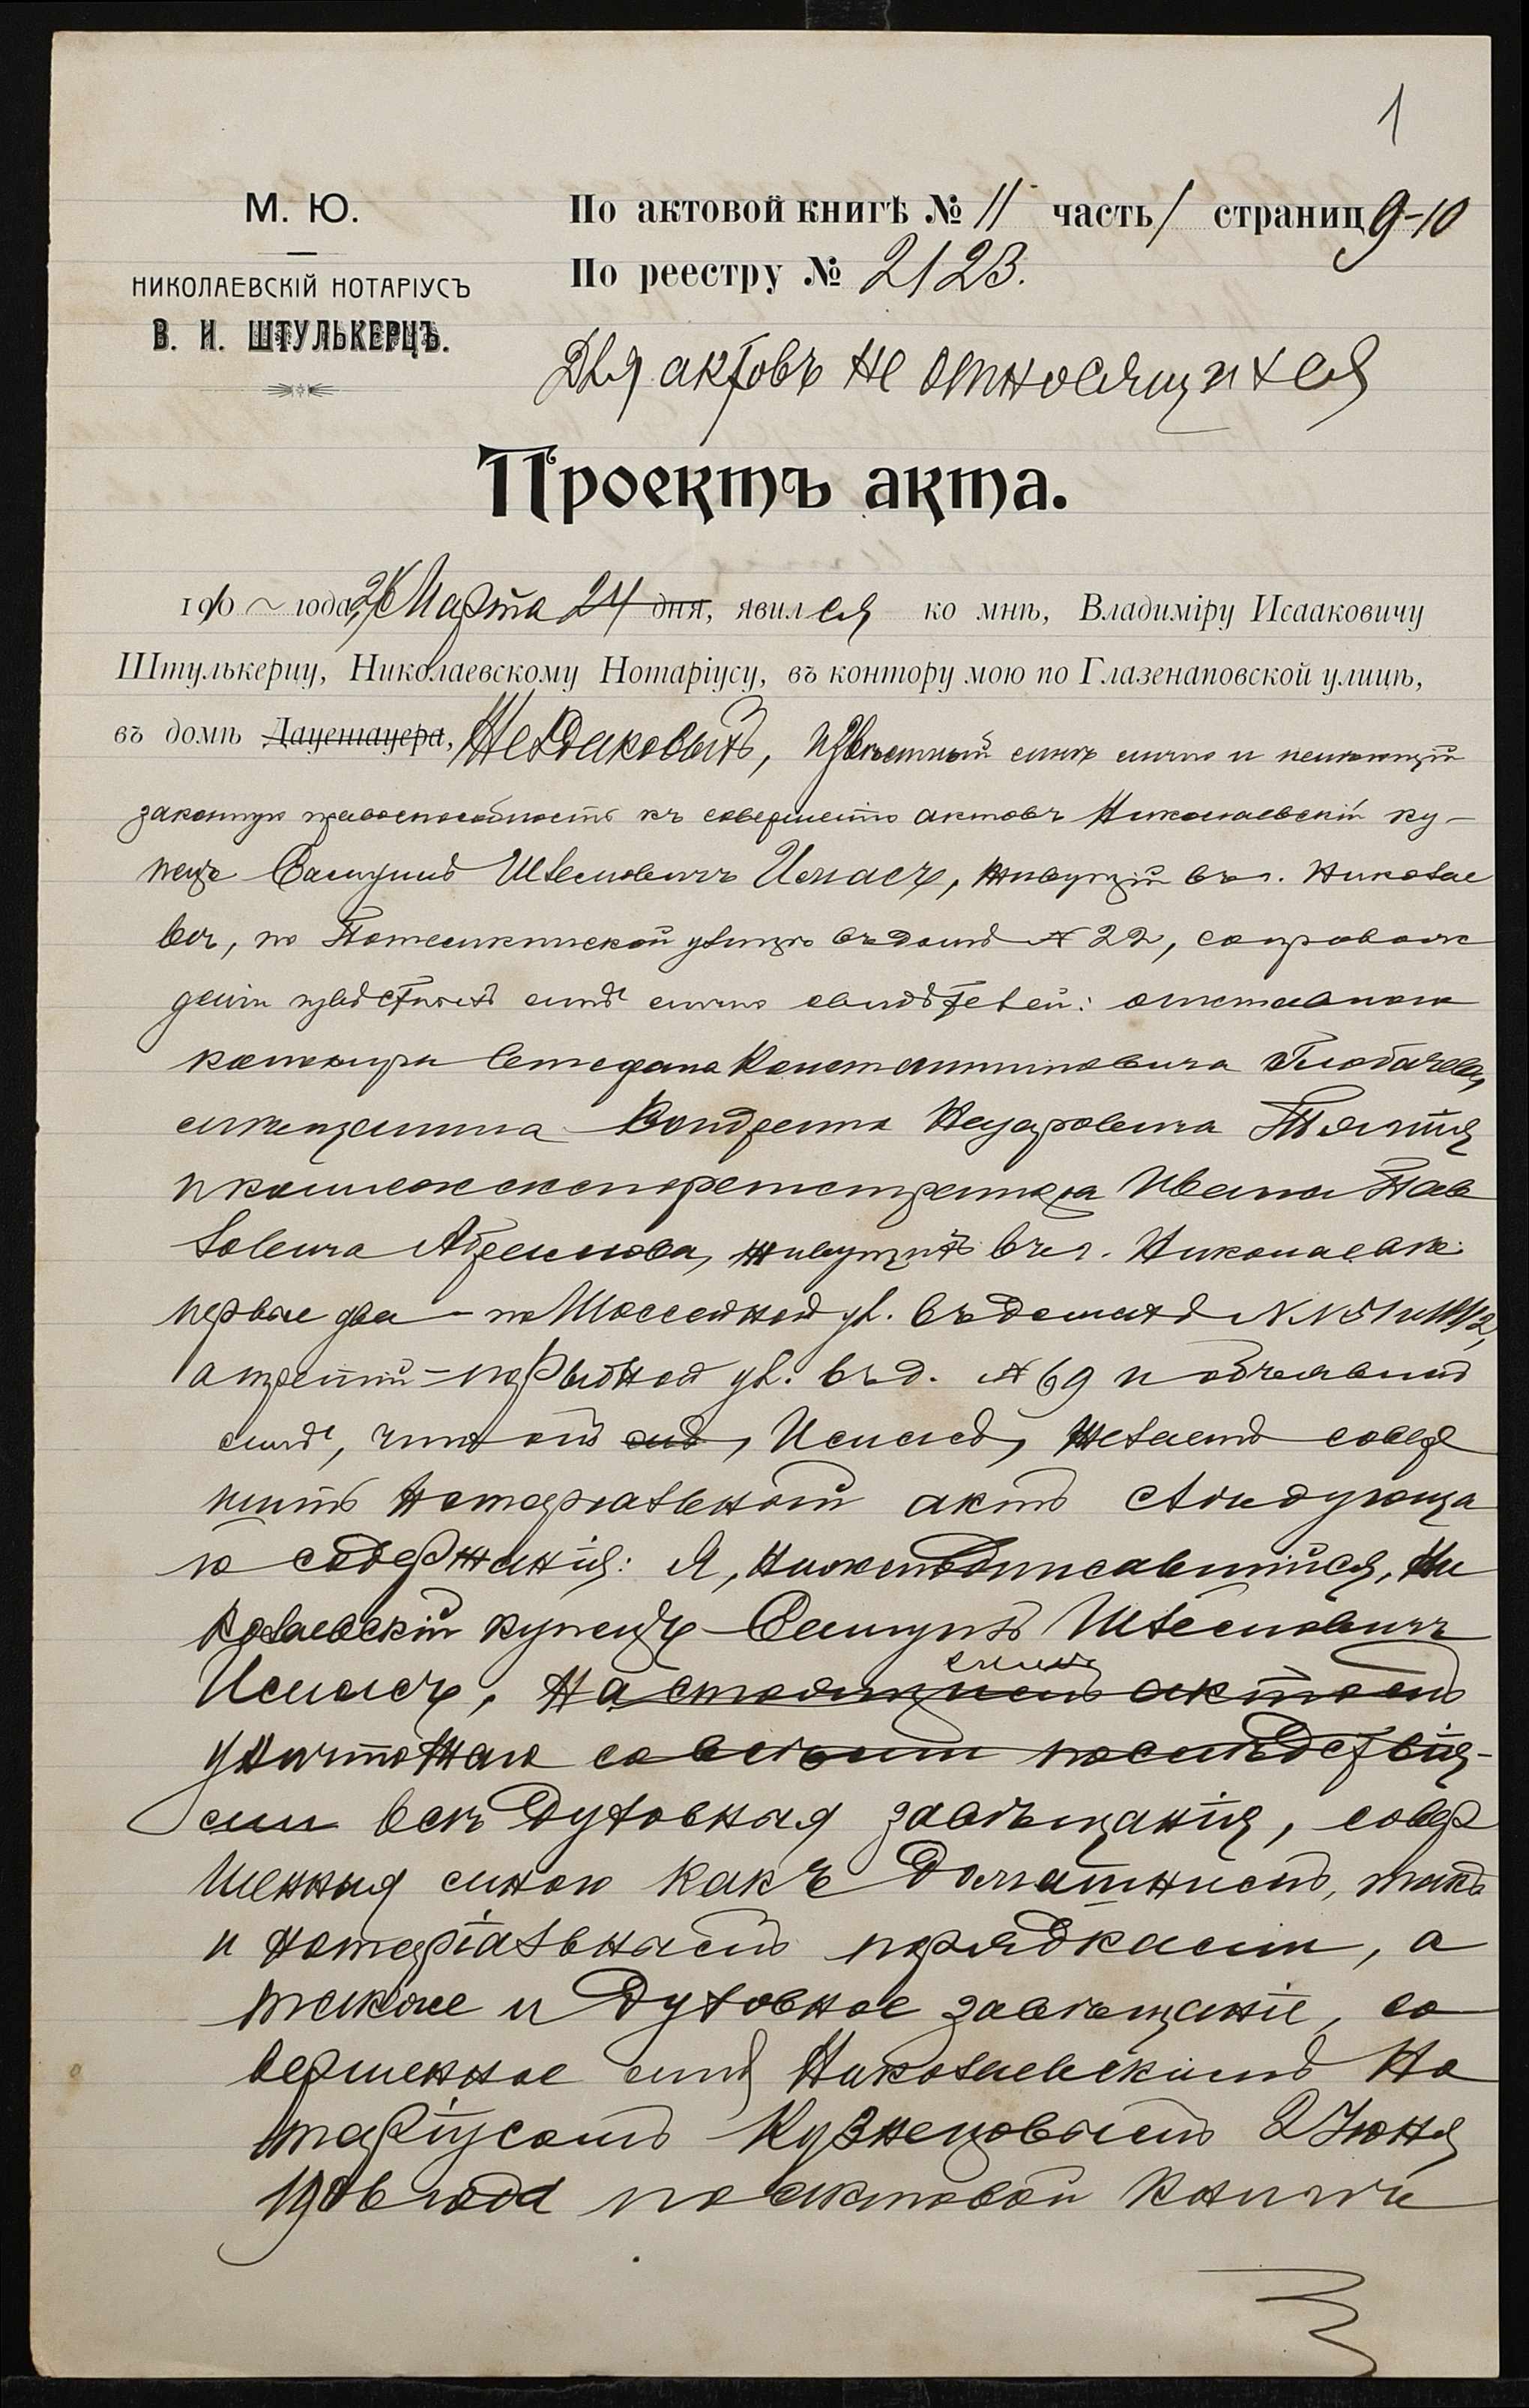 1
М. Ю.
НИКОЛАЕВСКІЙ НОТАРІУСЪ
В. И. ШТУЛЬКЕРЦЪ.
По актовой книгѣ № 11 часть 1 страниц 9-10
По реестру № 2123.
Для актовъ не относящихся
Проектъ акта.
1910 года, Марта 24 дня, явился ко мнѣ, Владиміру Исааковичу
Штулькерцу, Николаевскому Нотаріусу, въ контору мою по Глазенаповской улицѣ,
въ домѣ Дауенгауера, извѣстный мнѣ лично и имѣющій
законную правоспособность къ совершенію актовъ Николаевскій ку-
пецъ Самуилъ Шлемовичъ живущій въ г. Николае
вѣ, по Потемкинской улицѣ въ домѣ № 22, въ сопровож
деніи извѣстныхъ мнѣ лично свидѣтелей: отставного
Степана Константиновича
мѣщанина Назаровича
и коллежскаго регистратора Ивана Пав
ловича живущихъ въ г. Николаевѣ:
первые два - по Шоссейной ул. въ домахъ № № 51 и
а третій - по Рыбной ул. въ д. № 69 и объявилъ
мнѣ, что онъ желаетъ совер
шить нотаріальный актъ слѣдующа
го содержанія: Я, нижеподписавшійся, Ни
колаевскій купецъ Самуилъ Шлемовичъ
симъ
настоящимъ актомъ
уничтожаю со всѣми послѣдствія-
ми всѣ духовныя завѣщанія, совер
шенныя мною какъ домашнимъ, такъ
и нотаріальнымъ порядками, а
также и духовное завѣщаніе, со
вершенное Николаевскимъ Но
таріусомъ Кузнецовымъ 2 Іюня
1906 года по актовой книгѣ